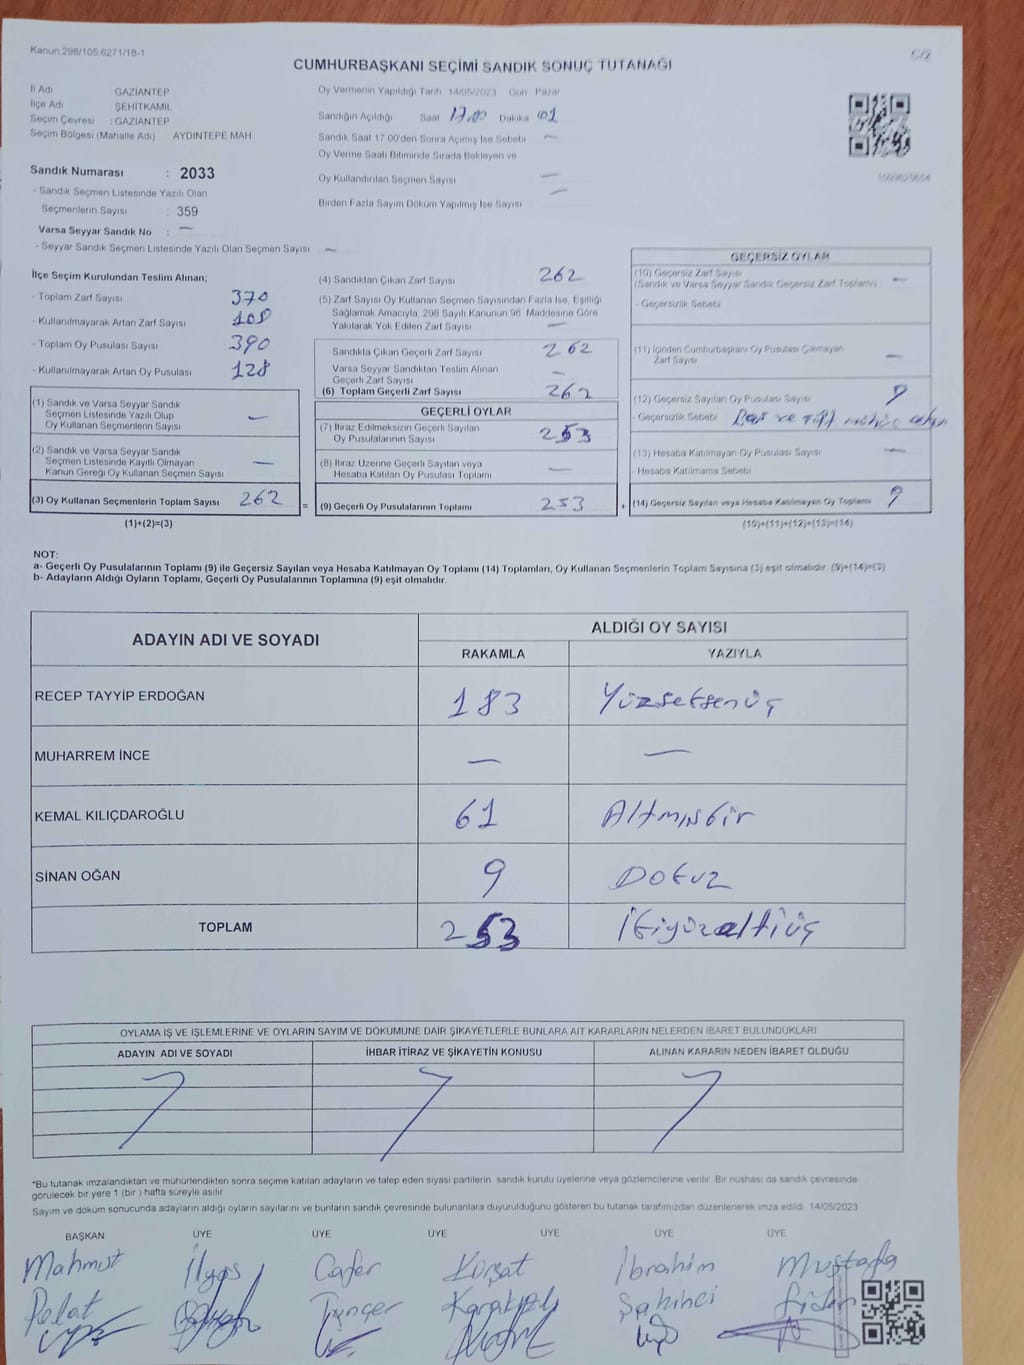 Kanun 298/105 6271/18-1
C/2
CUMHURBAŞKANI SEÇİMİ SANDIK SONUÇ TUTANAĞI
İl Adı GAZİANTEP
İlçe Adı ŞEHİTKAMİL
Seçim Çevresi : GAZİANTEP
Seçim Bölgesi (Mahalle Adı) AYDINTEPE MAH.
Oy Vermenin Yapıldığı Tarih 14/05/2023 Gün Pazar
Sandığın Açıldığı Saat 17.00 Dakika 01
Sandık Saat 17:00'den Sonra Açılmış İse Sebebi —
Oy Verme Saati Bitiminde Sırada Bekleyen ve
Oy Kullandırılan Seçmen Sayısı —
Birden Fazla Sayım Döküm Yapılmış İse Sayısı —
Sandık Numarası : 2033
- Sandık Seçmen Listesinde Yazılı Olan
Seçmenlerin Sayısı : 359
Varsa Seyyar Sandık No : —
- Seyyar Sandık Seçmen Listesinde Yazılı Olan Seçmen Sayısı —
İlçe Seçim Kurulundan Teslim Alınan;
- Toplam Zarf Sayısı 370
- Kullanılmayarak Artan Zarf Sayısı 108
- Toplam Oy Pusulası Sayısı 390
- Kullanılmayarak Artan Oy Pusulası 128
(1) Sandık ve Varsa Seyyar Sandık
Seçmen Listesinde Yazılı Olup
Oy Kullanan Seçmenlerin Sayısı —
(2) Sandık ve Varsa Seyyar Sandık
Seçmen Listesinde Kayıtlı Olmayan
Kanun Gereği Oy Kullanan Seçmen Sayısı —
(3) Oy Kullanan Seçmenlerin Toplam Sayısı 262
(1)+(2)=(3)
=
(4) Sandıktan Çıkan Zarf Sayısı 262
(5) Zarf Sayısı Oy Kullanan Seçmen Sayısından Fazla İse, Eşitliği
Sağlamak Amacıyla, 298 Sayılı Kanunun 98. Maddesine Göre
Yakılarak Yok Edilen Zarf Sayısı —
Sandıkta Çıkan Geçerli Zarf Sayısı 262
Varsa Seyyar Sandıktan Teslim Alınan
Geçerli Zarf Sayısı —
(6) Toplam Geçerli Zarf Sayısı 262
GEÇERLİ OYLAR
(7) İtiraz Edilmeksizin Geçerli Sayılan
Oy Pusulalarının Sayısı 253
(8) İtiraz Üzerine Geçerli Sayılan veya
Hesaba Katılan Oy Pusulası Toplamı —
(9) Geçerli Oy Pusulalarının Toplamı 253
+
GEÇERSİZ OYLAR
(10) Geçersiz Zarf Sayısı
(Sandık ve Varsa Seyyar Sandık Geçersiz Zarf Toplamı) —
- Geçersizlik Sebebi
(11) İçinden Cumhurbaşkanı Oy Pusulası Çıkmayan
Zarf Sayısı —
(12) Geçersiz Sayılan Oy Pusulası Sayısı 9
- Geçersizlik Sebebi ve
(13) Hesaba Katılmayan Oy Pusulası Sayısı —
- Hesaba Katılmama Sebebi
(14) Geçersiz Sayılan veya Hesaba Katılmayan Oy Toplamı 9
(10)+(11)+(12)+(13)=(14)
NOT:
a- Geçerli Oy Pusulalarının Toplamı (9) ile Geçersiz Sayılan veya Hesaba Katılmayan Oy Toplamı (14) Toplamları, Oy Kullanan Seçmenlerin Toplam Sayısına (3) eşit olmalıdır. (9)+(14)=(3)
b- Adayların Aldığı Oyların Toplamı, Geçerli Oy Pusulalarının Toplamına (9) eşit olmalıdır.
ADAYIN ADI VE SOYADI
ALDIĞI OY SAYISI
RAKAMLA YAZIYLA
RECEP TAYYİP ERDOĞAN 183 Yüzseksenüç
MUHARREM İNCE — —
KEMAL KILIÇDAROĞLU 61 Altmışbir
SİNAN OĞAN 9 Dokuz
TOPLAM 253 İkiyüzaltiüç
OYLAMA İŞ VE İŞLEMLERİNE VE OYLARIN SAYIM VE DÖKÜMÜNE DAİR ŞİKAYETLERLE BUNLARA AİT KARARLARIN NELERDEN İBARET BULUNDUKLARI
ADAYIN ADI VE SOYADI İHBAR İTİRAZ VE ŞİKAYETİN KONUSU ALINAN KARARIN NEDEN İBARET OLDUĞU
*Bu tutanak imzalandıktan ve mühürlendikten sonra seçime katılan adayların ve talep eden siyasi partilerin sandık kurulu üyelerine veya gözlemcilerine verilir. Bir nüshası da sandık çevresinde
görülecek bir yere 1 (bir) hafta süreyle asılır
Sayım ve döküm sonucunda adayların aldığı oyların sayılarını ve bunların sandık çevresinde bulunanlara duyurulduğunu gösteren bu tutanak tarafımızdan düzenlenerek imza edildi. 14/05/2023
BAŞKAN ÜYE ÜYE ÜYE ÜYE ÜYE ÜYE
Mahmut İlyas Cafer Kürşat İbrahim Mustafa
Polat Tunçer Karakuş Şahinci Fidan